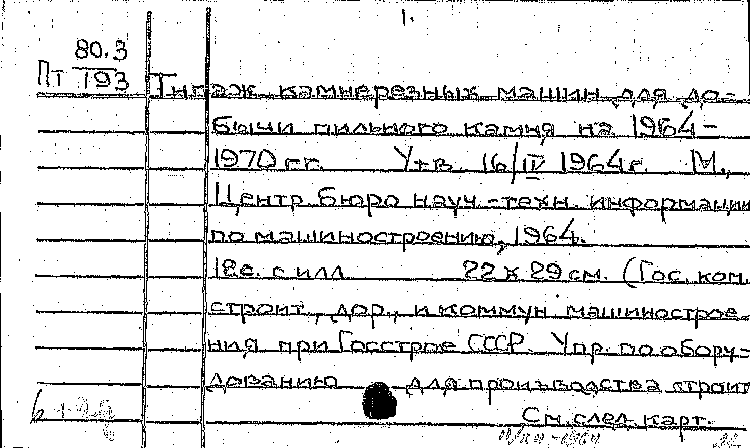 1.
80.3
Пт 193 Типаж камнерезных машин для до-
бычи пильного камня на 1964-
1970 гг. Утв. 16/IV 1964г. М.,
Центр бюро науч.-техн. информации
по машиностроению, 1964.
18с. с илл 22 х 29 см. (Гос. ком.
строит., дор., и коммун машинострое-
ния при Госстрое СССР. Упр. по обору-
дованию для производства строит
См. след. карт.